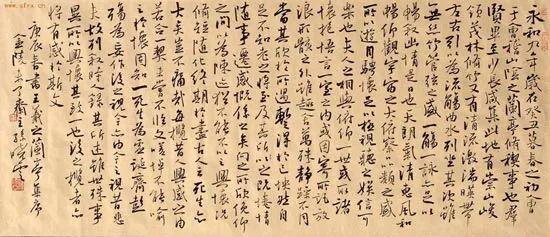 永和九年歲在癸丑暮春之初會
于會稽山陰之蘭亭脩禊事也羣
賢畢至少長咸集此地有崇山峻
領茂林脩竹又有清流激湍映帶
左右引以為流觴曲水列坐其次雖
無絲竹管弦之盛一觴一詠亦足以
暢敘幽情是日也天朗氣清惠風和
暢仰觀宇宙之大俯察品類之盛
所以遊目騁懷足以極視聽之娛信可
樂也夫人之相與俯仰一世或取諸
懷抱悟言一室之內或因寄所託放
浪形骸之外雖趣舍萬殊靜躁不同
當其欣於所遇暫得於己快然自
隨事遷感慨係之矣向之所欣俛仰
之間以為陳迹猶不能不以之興懷況
脩短隨化終期於盡古人云死生亦
大矣豈不痛哉每攬昔人興感之由
若合一契未嘗不臨文嗟悼不能喻
之於懷固知一死生為虛誕齊彭
殤為妄作後之視今亦由今之視昔悲
夫故列敘時人錄其所述雖世殊事
異所以興懷其致一也後之攬者亦
將有感於斯文
庚辰春書王羲之蘭亭集序
金陵 孫曉雲